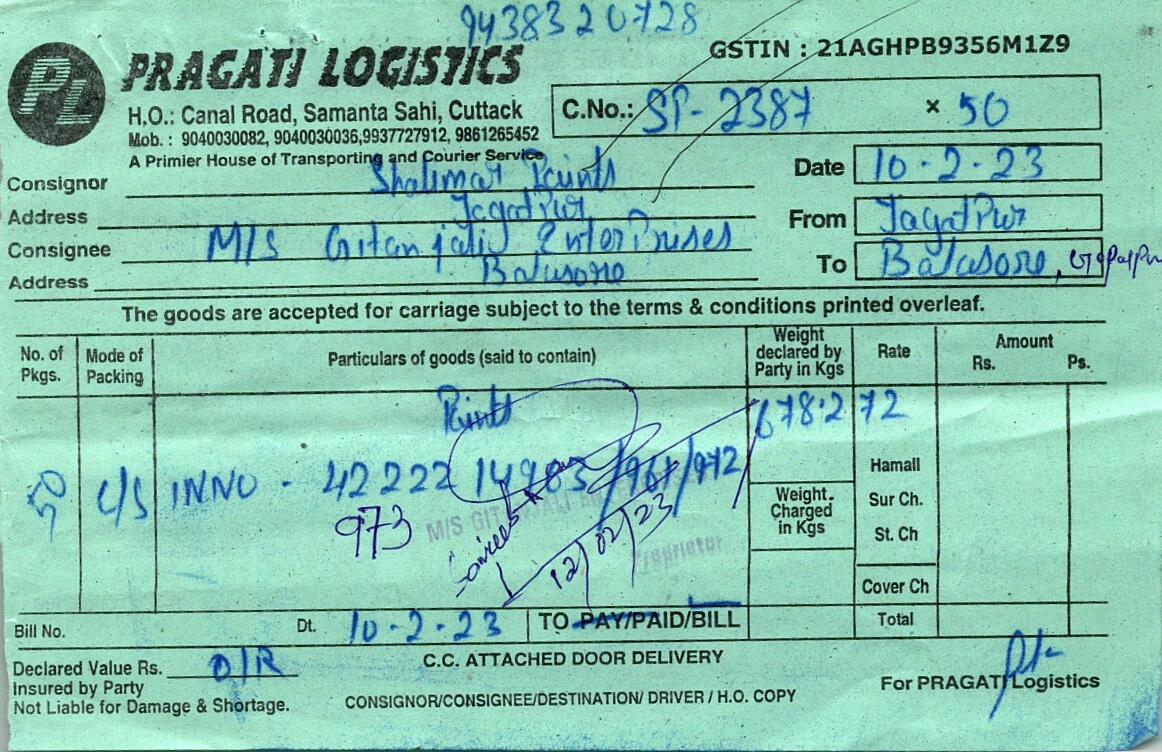 9438320728
GSTIN : 21AGHPB9356M1Z9
PL
PRAGATI LOGISTICS
H.O.: Canal Road, Samanta Sahi, Cuttack
Mob. : 9040030082, 9040030036,9937727912, 9861265452
A Primier House of Transporting and Courier Service
C.No.: SP- 2387 × 50
Consignor Shalimar Paints
Date 10-2-23
Address Jagatpur
From Jagatpur
Consignee M/S Gitanjali Enterprises
To Balasore, Gopalpur
Address Balasore
The goods are accepted for carriage subject to the terms & conditions printed overleaf.
No. of Pkgs. Mode of Packing Particulars of goods (said to contain) Weight declared by Party in Kgs Rate Amount Rs. Ps.
Paints 678.272
50 C/S INNO - 42222 14983/961/972/
973
M/S GITANJALI
12/02/23
Proprietor
Weight. Charged in Kgs
Hamali
Sur Ch.
St. Ch
Cover Ch
Bill No. Dt. 10-2-23 TO PAY/PAID/BILL Total
Declared Value Rs. O/R
C.C. ATTACHED DOOR DELIVERY
Insured by Party
Not Liable for Damage & Shortage.
CONSIGNOR/CONSIGNEE/DESTINATION/ DRIVER / H.O. COPY
For PRAGATI Logistics